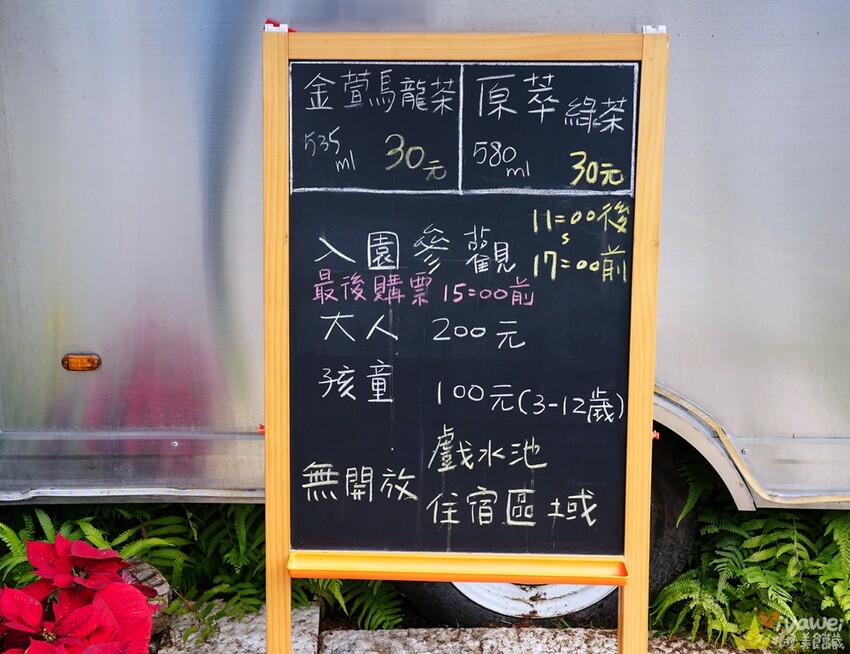 金萱烏龍茶
535 ml 30元
原萃綠茶
580 ml 30元
11:00後
入園參觀 17:00前
最後購票 15:00前
大人 200元
孩童 100元(3-12歲)
無開放 戲水池
住宿區域
Viyawei